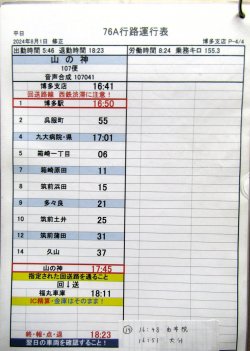 平日
76A行路運行表
2024年9月1日 修正
博多支店 P-4/4
出勤時間 5:46 退勤時間 18:23 労働時間 8.24 乗務キロ 155.3
山の神
107便
音声合成 107041
博多支店 16:41
回送路線 西鉄渋滞に注意!
1 博多駅 16:50
2 呉服町 55
4 九大病院・県 17:01
5 箱崎一丁目 06
7 箱崎原田 11
8 筑前浜田 15
9 多々良 21
10 筑前土井 25
12 筑前蒲田 31
14 久山 37
山の神 17:45
指定された回送路を通ること
回↓送
福丸車庫 18:11
IC精算・金庫はそのまま!
終・報・点・退 18:23
翌日の車両を確認すること!
16:48
16:51 大分